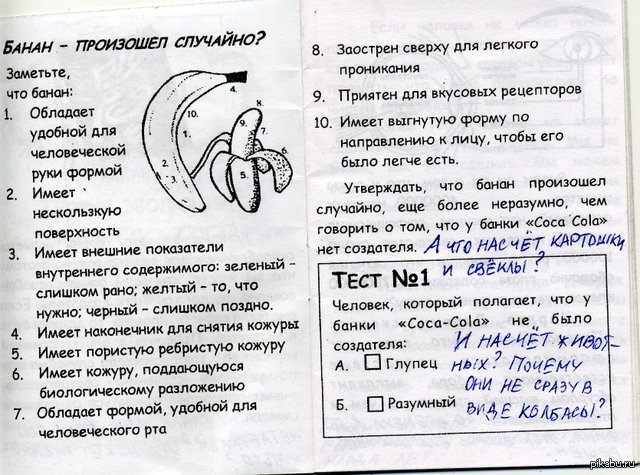 БАНАН – ПРОИЗОШЕЛ СЛУЧАЙНО?
Заметьте,
что банан:
1. Обладает
удобной для
человеческой
руки формой
2. Имеет
нескользкую
поверхность
3. Имеет внешние показатели
внутреннего содержимого: зеленый –
слишком рано; желтый – то, что
нужно; черный – слишком поздно.
4. Имеет наконечник для снятия кожуры
5. Имеет пористую ребристую кожуру
6. Имеет кожуру, поддающуюся
биологическому разложению
7. Обладает формой, удобной для
человеческого рта
4.
10.
8.
9.
7.
6.
1.
2.
3.
5.
8. Заострен сверху для легкого
проникания
9. Приятен для вкусовых рецепторов
10. Имеет выгнутую форму по
направлению к лицу, чтобы его
было легче есть.
Утверждать, что банан произошел
случайно, еще более неразумно, чем
говорить о том, что у банки «Coca Cola»
нет создателя. А ЧТО НАСЧЁТ КАРТОШКИ
И СВЁКЛЫ?
ТЕСТ №1
Человек, который полагает, что у
банки «Coca-Cola» не было
создателя:
А. Глупец
Б. Разумный
И НАСЧЁТ ЖИВОТ-
НЫХ? ПОЧЕМУ
ОНИ НЕ СРАЗУ В
ВИДЕ КОЛБАСЫ?
pikabu.ru